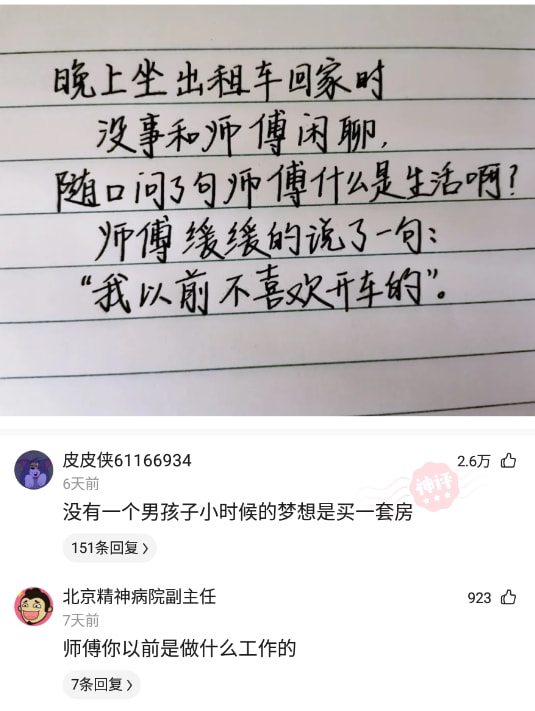 晚上坐出租车回家时
没事和师傅闲聊,
随口问了句师傅什么是生活啊?
师傅缓缓的说了一句:
“我以前不喜欢开车的”。
皮皮侠61166934
2.6万
6天前
神评
没有一个男孩子小时候的梦想是买一套房
151条回复
北京精神病院副主任
923
7天前
师傅你以前是做什么工作的
7条回复